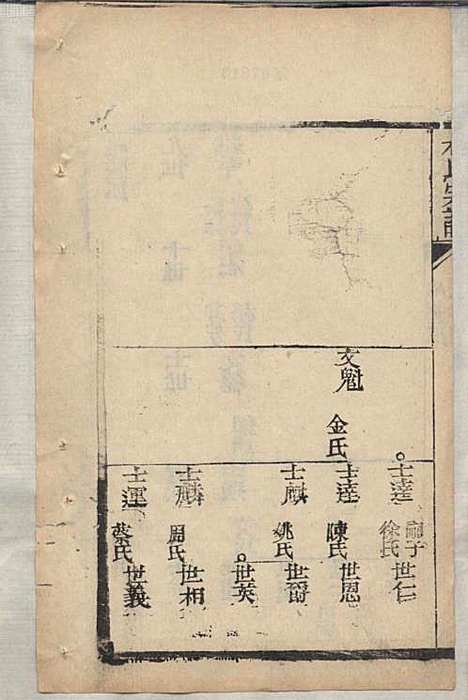 文魁
金氏
士
嗣子
徐氏
世仁
士達
陳氏
世恩
士麒
姚氏
世爵
世英
士麟
周氏
世相
士運
蔡氏
世義